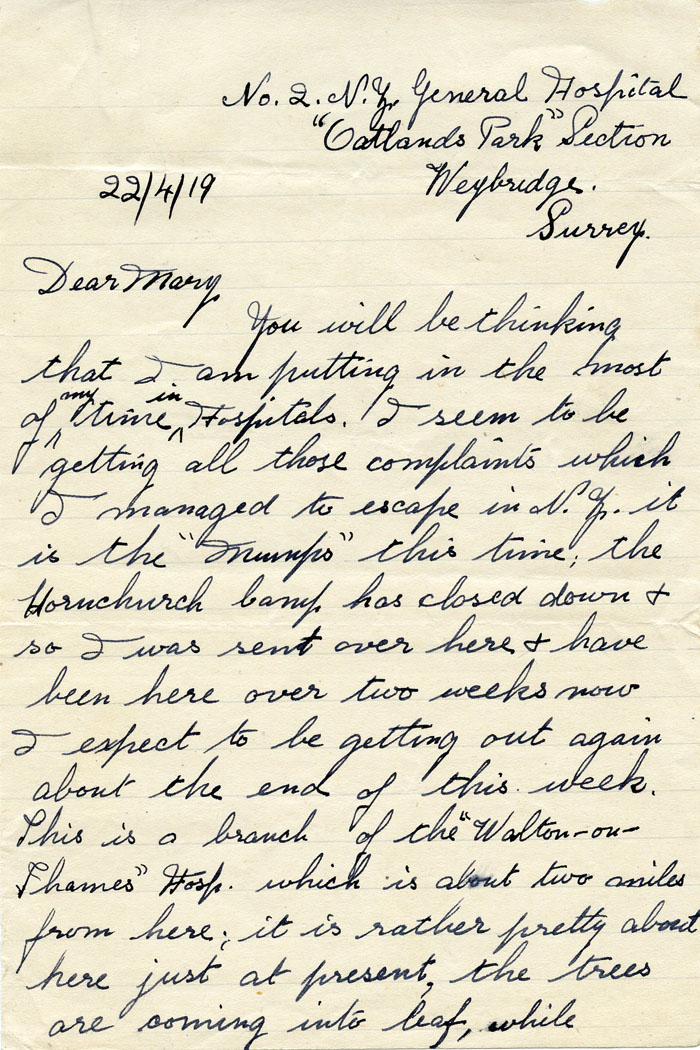 No. 2. N.Z. General Hospital
"Oatlands Park" Section
Weybridge.
22/4/19
Surrey.
Dear Mary
You will be thinking
that I am putting in the most
of my time in Hospitals. I seem to be
getting all those complaints which
I managed to escape in N.Z. it
is the "Mumps" this time; the
Hornchurch Camp has closed down &
so I was sent over here & have
been here over two weeks now
I expect to be getting out again
about the end of this week.
This is a branch of the "Walton-on-
Thames" Hosp. which is about two miles
from here; it is rather pretty about
here just at present, the trees
are coming into leaf, while